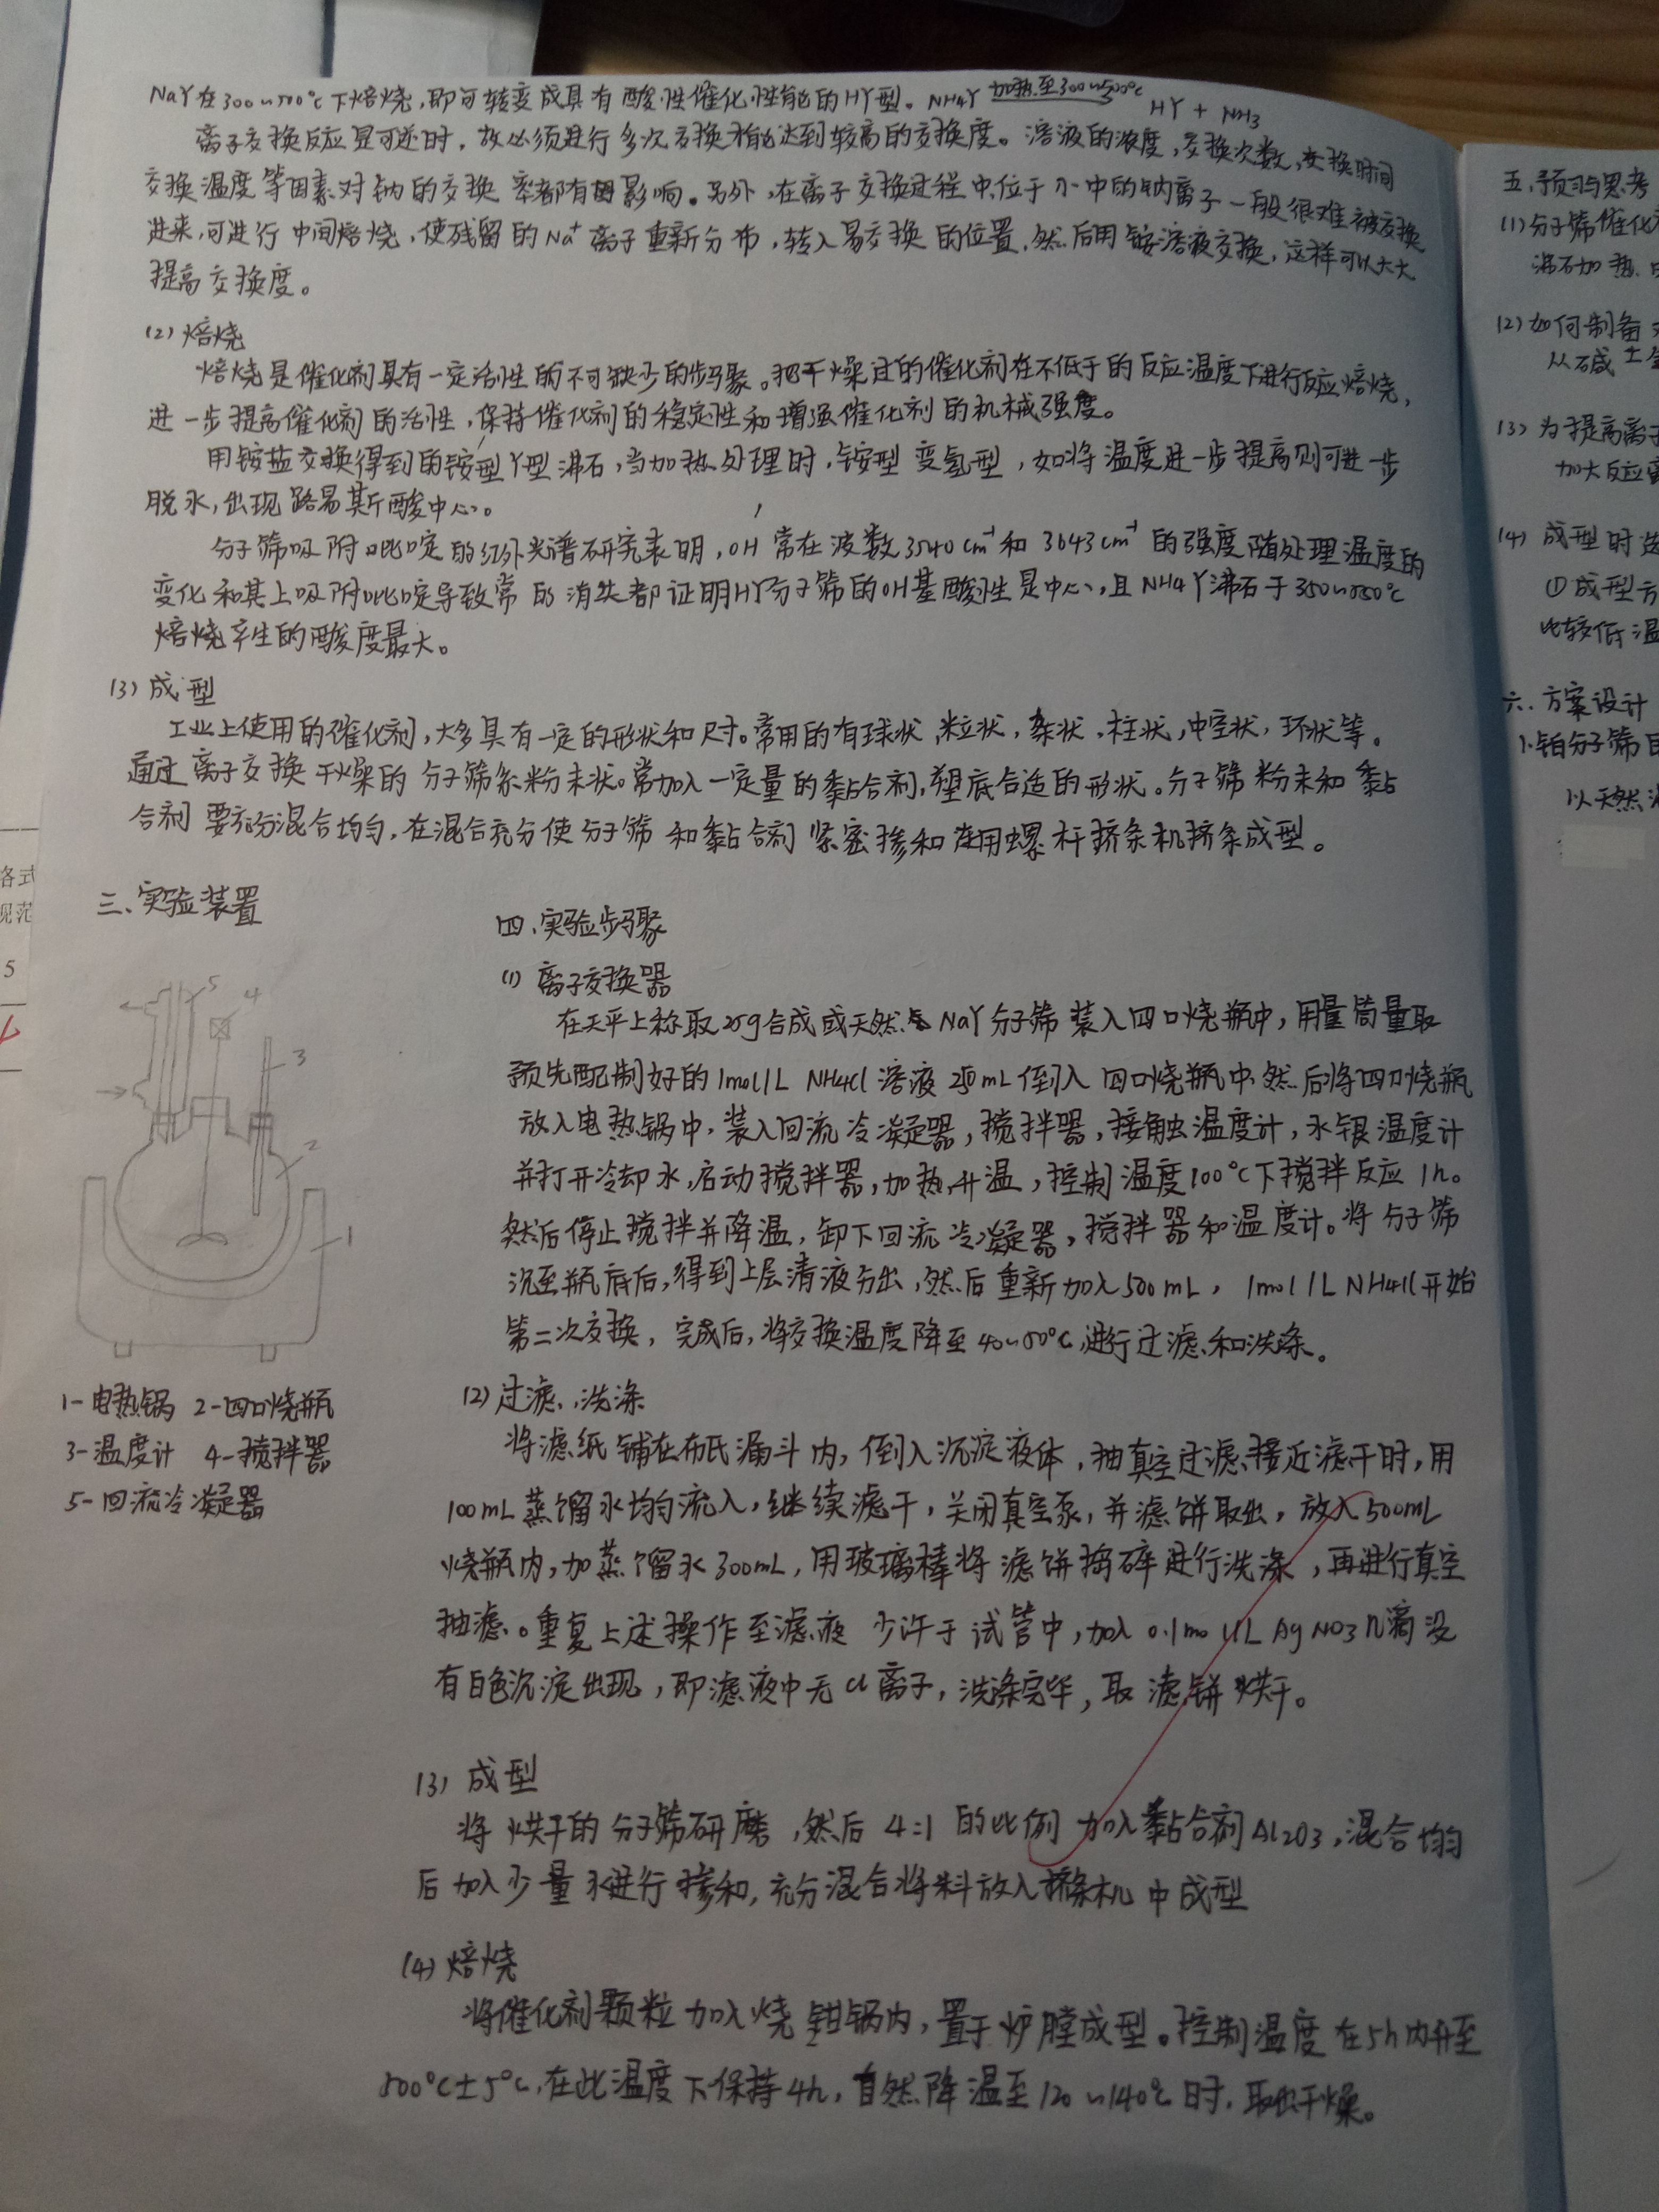 NaY在300~500℃下焙烧,即可转变成具有酸性催化性能的HY型。NH4Y 加热至300~500℃ HY + NH3
离子交换反应是可逆时,故必须进行多次交换才能达到较高的交换度。溶液的浓度,交换次数,交换时间
交换温度等因素对钠的交换率都有影响。另外,在离子交换过程中,位于小中的钠离子一般很难被交换
进来,可进行中间焙烧,使残留的Na⁺离子重新分布,转入易交换的位置,然后用铵溶液交换,这样可以大大
提高交换度。
(2)焙烧
焙烧是催化剂具有一定活性的不可缺少的步骤。把干燥过的催化剂在不低于的反应温度下进行反应焙烧,
进一步提高催化剂的活性,保持催化剂的稳定性和增强催化剂的机械强度。
用铵盐交换得到的铵型Y型沸石,当加热处理时,铵型变氢型,如将温度进一步提高则可进一步
脱水,出现路易斯酸中心。
分子筛吸附吡啶的红外光谱研究表明,OH常在波数3540cm⁻¹和3643cm⁻¹的强度随处理温度的
变化和其上吸附吡啶导致常的消失都证明HY分子筛的OH基酸性是中心,且NH4Y沸石于350~550℃
焙烧产生的酸度最大。
(3)成型
工业上使用的催化剂,大多具有一定的形状和尺寸。常用的有球状,粒状,条状,柱状,中空状,环状等。
通过离子交换干燥的分子筛系粉末状。常加入一定量的黏合剂,塑底合适的形状。分子筛粉末和黏
合剂要充分混合均匀,在混合充分使分子筛和黏合剂紧密掺和在用螺杆挤条机挤条成型。
三、实验装置
5
4
3
2
1
1-电热锅 2-四口烧瓶
3-温度计 4-搅拌器
5-回流冷凝器
四、实验步骤
(1)离子交换器
在天平上称取25g合成或天然NaY分子筛装入四口烧瓶中,用量筒量取
预先配制好的1mol/L NH4Cl溶液 mL倒入四口烧瓶中,然后将四口烧瓶
放入电热锅中,装入回流冷凝器,搅拌器,接触温度计,水银温度计
并打开冷却水,启动搅拌器,加热升温,控制温度100℃下搅拌反应1h。
然后停止搅拌并降温,卸下回流冷凝器,搅拌器和温度计。将分子筛
沉至瓶底后,得到上层清液方出,然后重新加入500mL,1mol/L NH4Cl开始
第二次交换,完成后,将交换温度降至40~50℃,进行过滤和洗涤。
(2)过滤、洗涤
将滤纸铺在布氏漏斗内,倒入沉淀液体,抽真空过滤,接近滤干时,用
100mL蒸馏水均匀流入,继续滤干,关闭真空泵,并滤饼取出,放入500mL
烧瓶内,加蒸馏水300mL,用玻璃棒将滤饼捣碎进行洗涤,再进行真空
抽滤。重复上述操作至滤液少许于试管中,加入0.1mol/L AgNO3几滴没
有白色沉淀出现,即滤液中无Cl离子,洗涤完毕,取滤饼烘干。
(3)成型
将烘干的分子筛研磨,然后4:1的比例加入黏合剂Al2O3,混合均匀
后加入少量水进行掺和,充分混合将料放入挤条机中成型
(4)焙烧
将催化剂颗粒加入烧钳锅内,置于炉膛成型。控制温度在5h内升至
500℃±5℃,在此温度下保持4h,自然降温至120~140℃时,取出干燥。
五、预习与思考
(1)分子筛催化
沸石加热
(2)如何制备
从碱土
(3)为提高离子
加大反应
(4)成型时
①成型方
比较低温
六、方案设计
1.铂分子筛
以天然
各式
规范
5